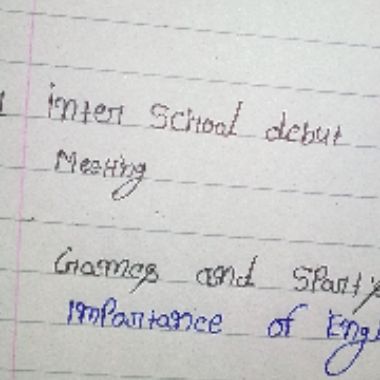 Inter School debut
Meeting
Games and Sports
Importance of Engl